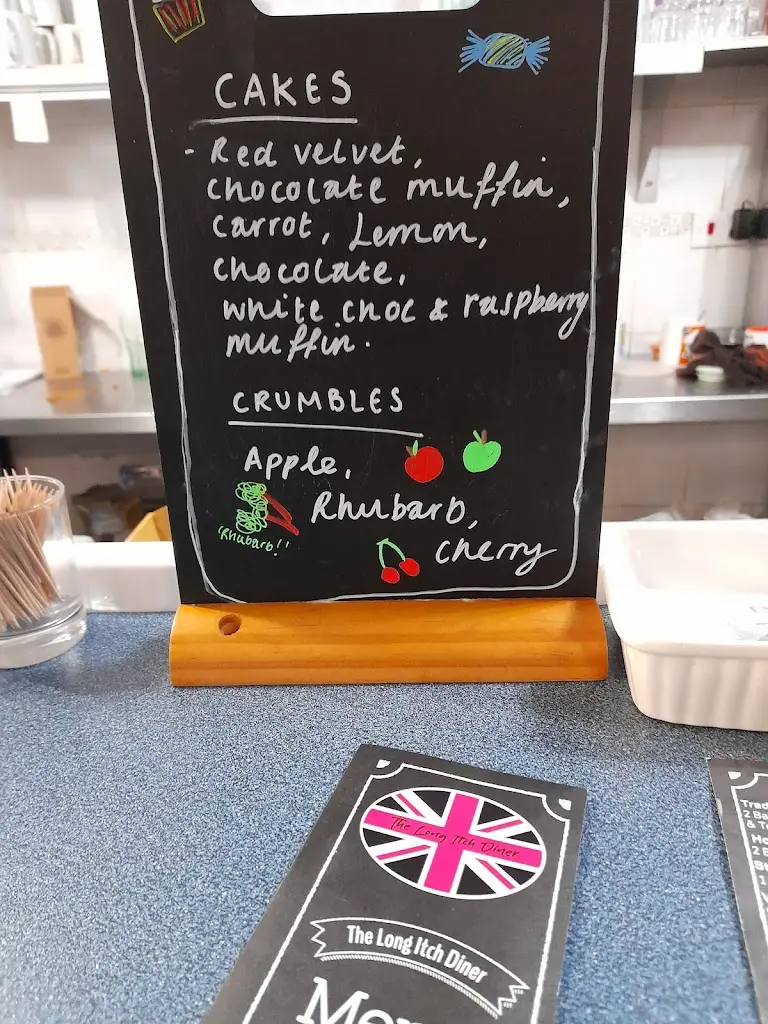 CAKES
- Red velvet,
chocolate muffin,
carrot, Lemon,
chocolate,
white choc & raspberry
muffin.
CRUMBLES
Apple,
Rhubarb,
'Rhubarb!!
cherry
The Long Itch Diner
The Long Itch Diner
Trad
2 Ba
& To